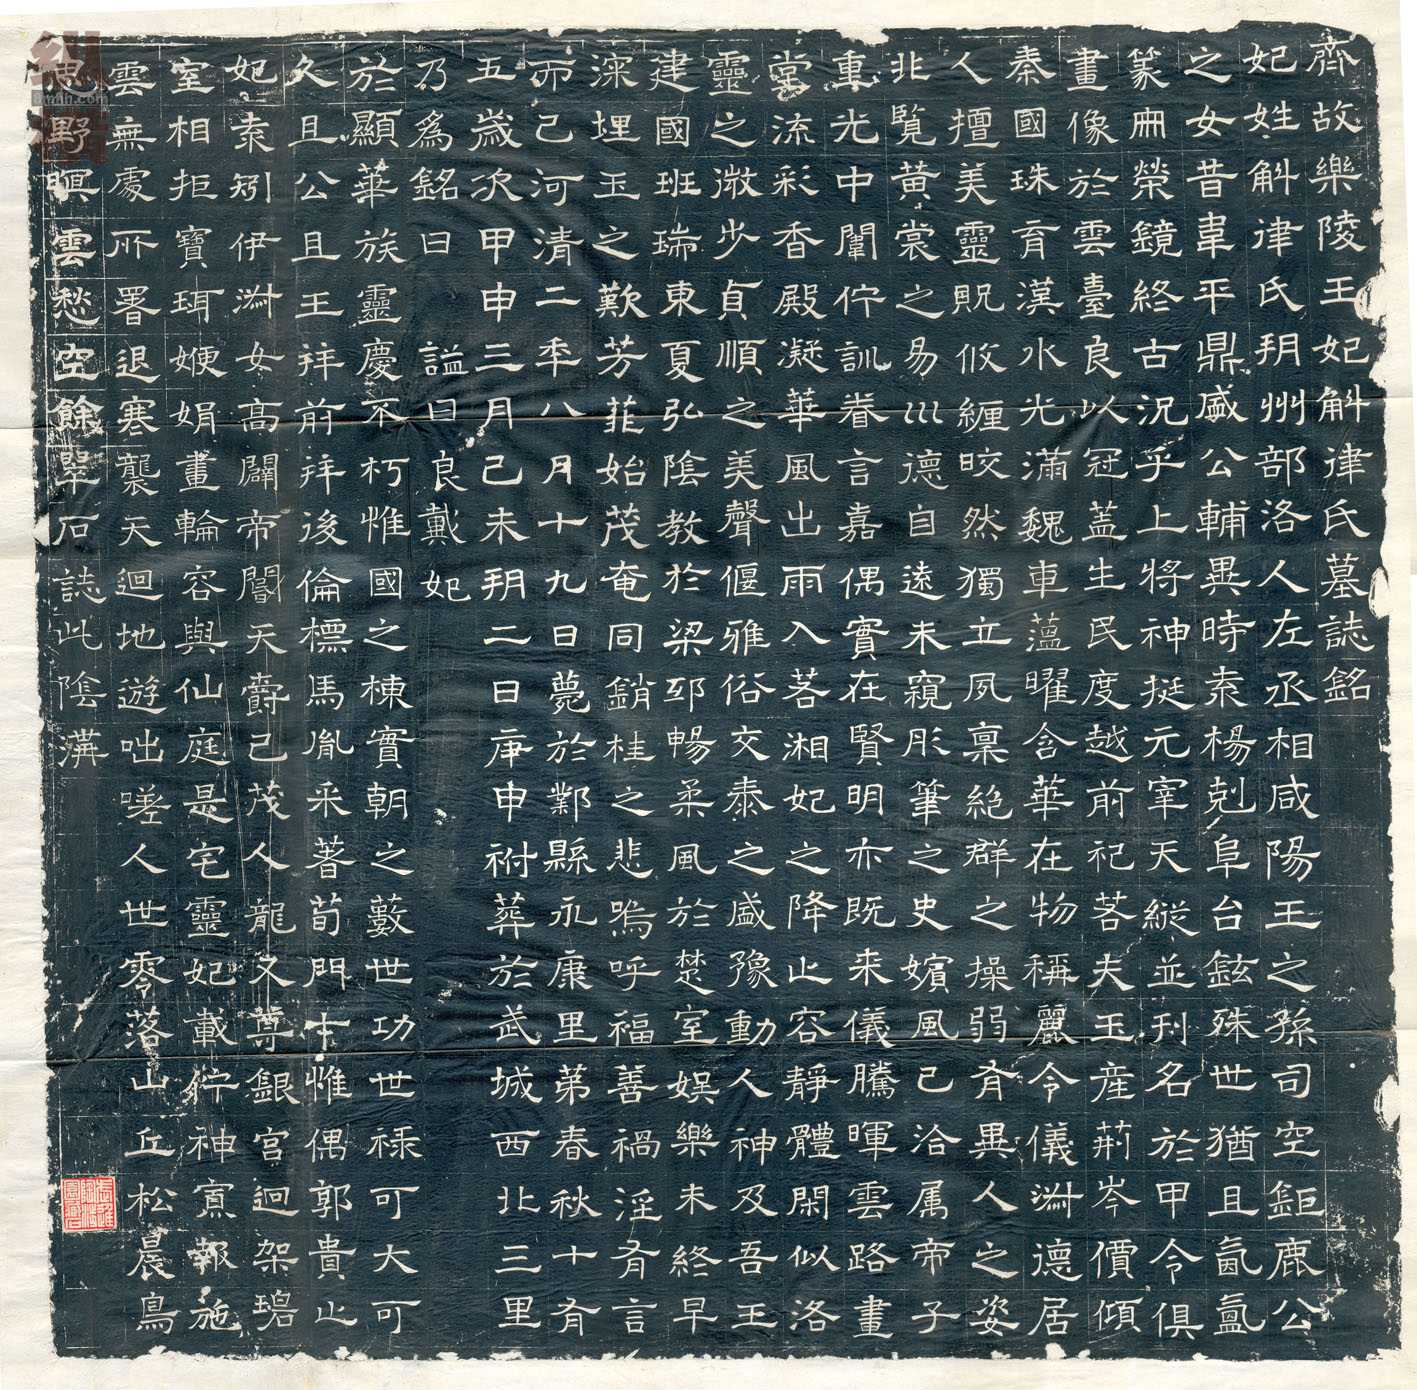 齊故樂陵王妃斛律氏墓誌銘
妃姓斛律氏朔州部洛人左丞相咸陽王之孫司空鉅鹿公
之女昔韋平鼎盛公輔異時袁楊剋阜台鉉殊世猶且氤氳
篆冊榮鏡終古況乎上將神挺元宰天縱並刊名於甲令俱
畫像於雲臺良以冠蓋生民度越前祀若夫玉產荊岑價傾
秦國珠育漢水光滿魏車蘊曜含華在物稱麗令儀淋德居
人擅美靈貺攸纏皎然獨立夙稟絕群之操弱有異人之姿
北覽黃裳之易巛德自遠未窺彤筆之史嬪風已洽屬帝子
重光中闈佇訓眷言嘉偶實在賢明亦既来儀騰暉雲路畫
堂流彩香殿凝華風出雨入若湘妃之降止容靜體閑似洛
靈之㣲步貞順之美聲偃雅俗交泰之盛豫動人神及吾王
建國班瑞東夏弘陰教於梁邳暢柔風於楚室娛樂未終早
深埋玉之歎芳菲始茂奄同銷桂之悲嗚呼福善禍淫有言
而已河清二年八月十九日薨於鄴縣永康里第春秋十有
五歲次甲申三月己未朔二日庚申祔葬於武城西北三里
乃為銘曰 謚曰良戴妃
於顯華族靈慶不朽惟國之棟實朝之藪世功世禄可大可
久且公且王拜前拜後倫標馬胤采著荀門 惟偶郭貴止
妃袁矧伊淋女高闢帝閽天爵已茂人龍又尊銀宮迴架珸
室相拒寶珥㛹娟畫輪容與仙庭是宅靈妃載佇神寘報施
雲無處所署退寒襲天迴地遊咄嗟人世零落山丘松晨鳥
思野暝雲愁空餘翠石誌此陰溝